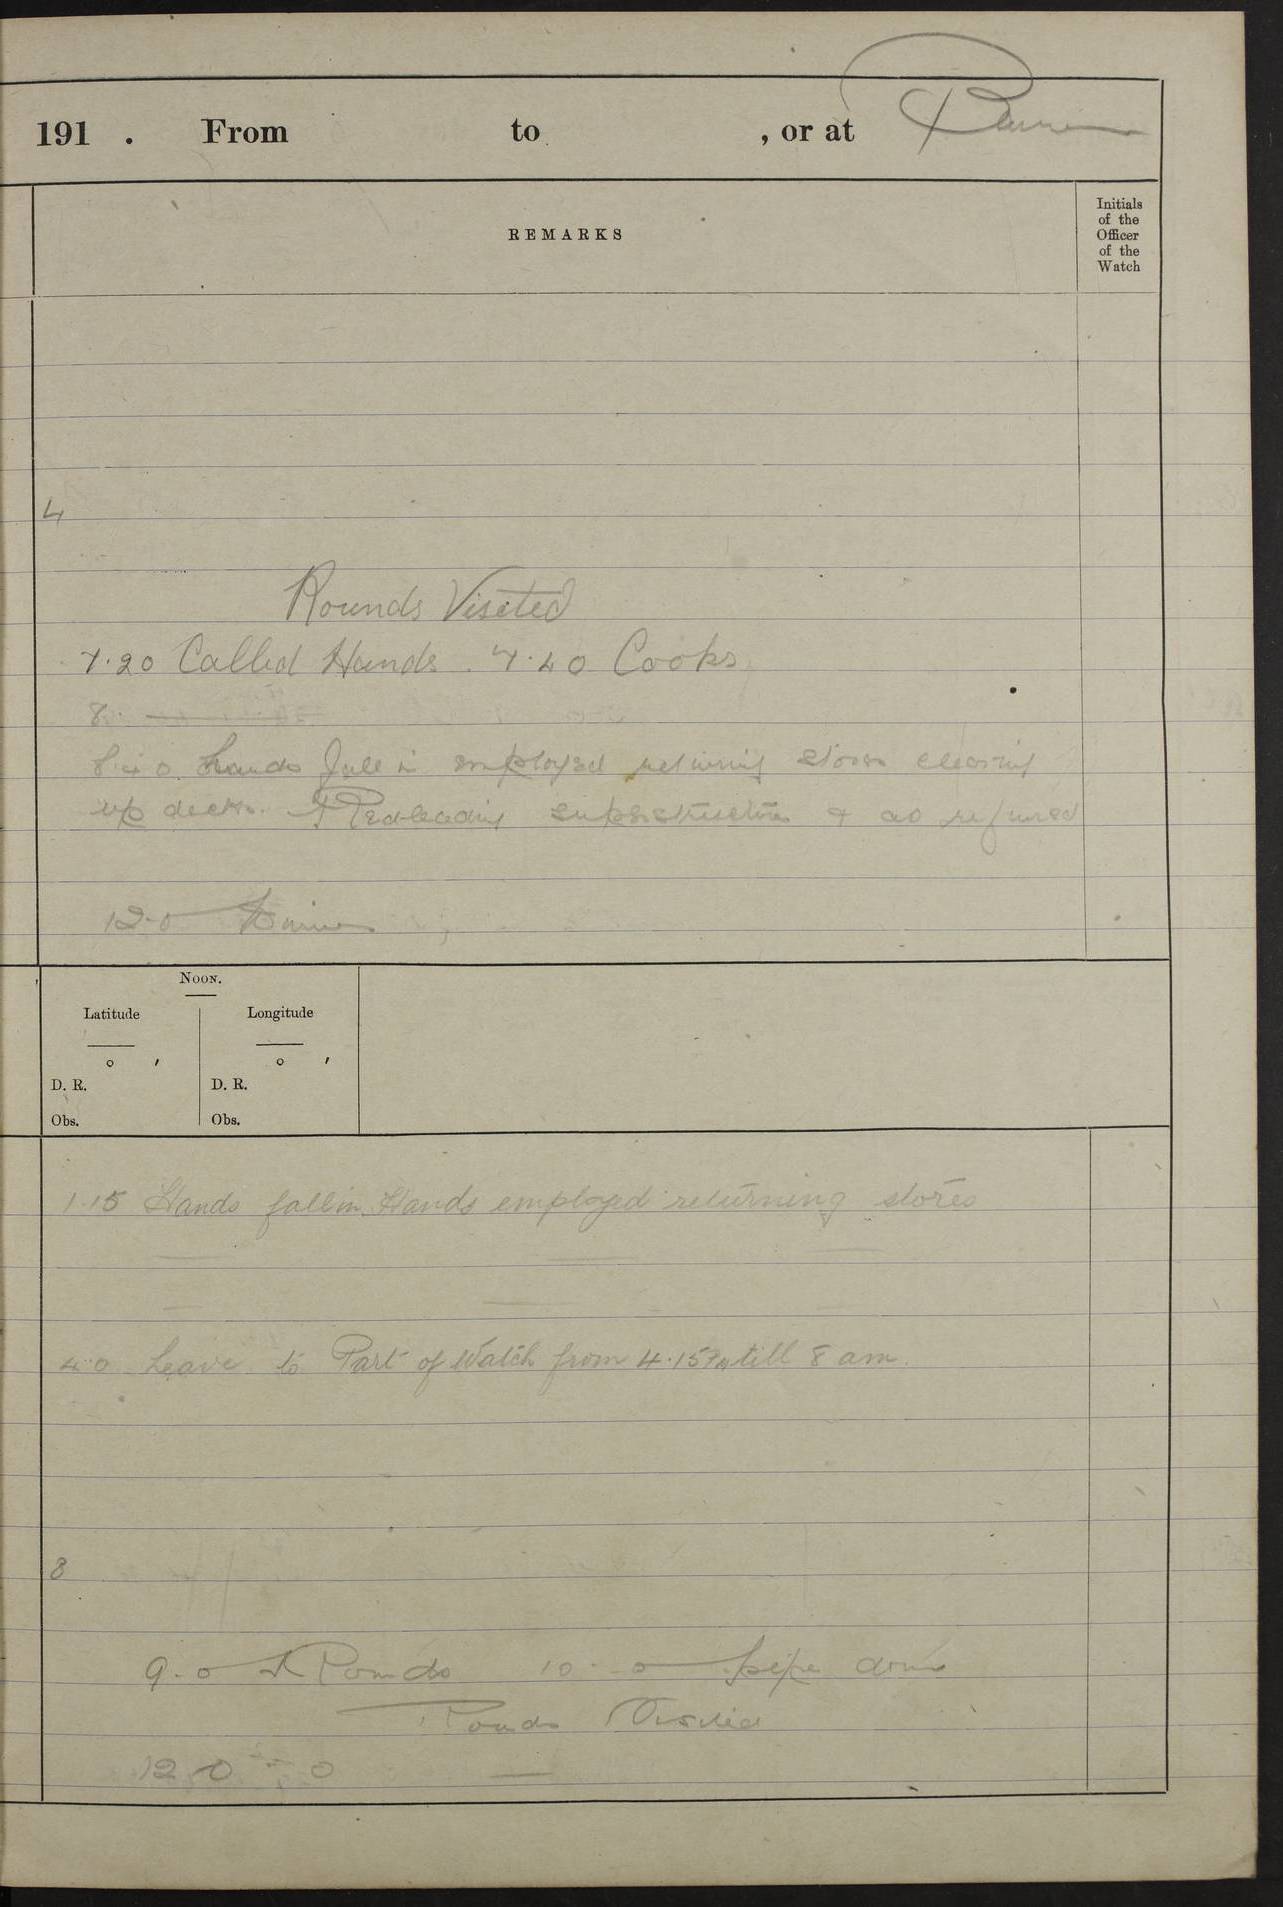 191 . From to , or at
REMARKS
Initials
of the
Officer
of the
Watch
4
Rounds Visited
7.20 Called Hands. 7.40 Cooks
8.
8.40 Hands fall in employed returning stores clearing
up decks. Redleading superstructure & as required
12.0 Dinner
NOON.
Latitude Longitude
° ′ ° ′
D. R. D. R.
Obs. Obs.
1.15 Hands fall in. Hands employed returning stores
4.0 Leave to Part of Watch from 4.15 PM till 8 am.
8
9.0 Rounds 10.0 pipe down
Rounds Visited
12 0